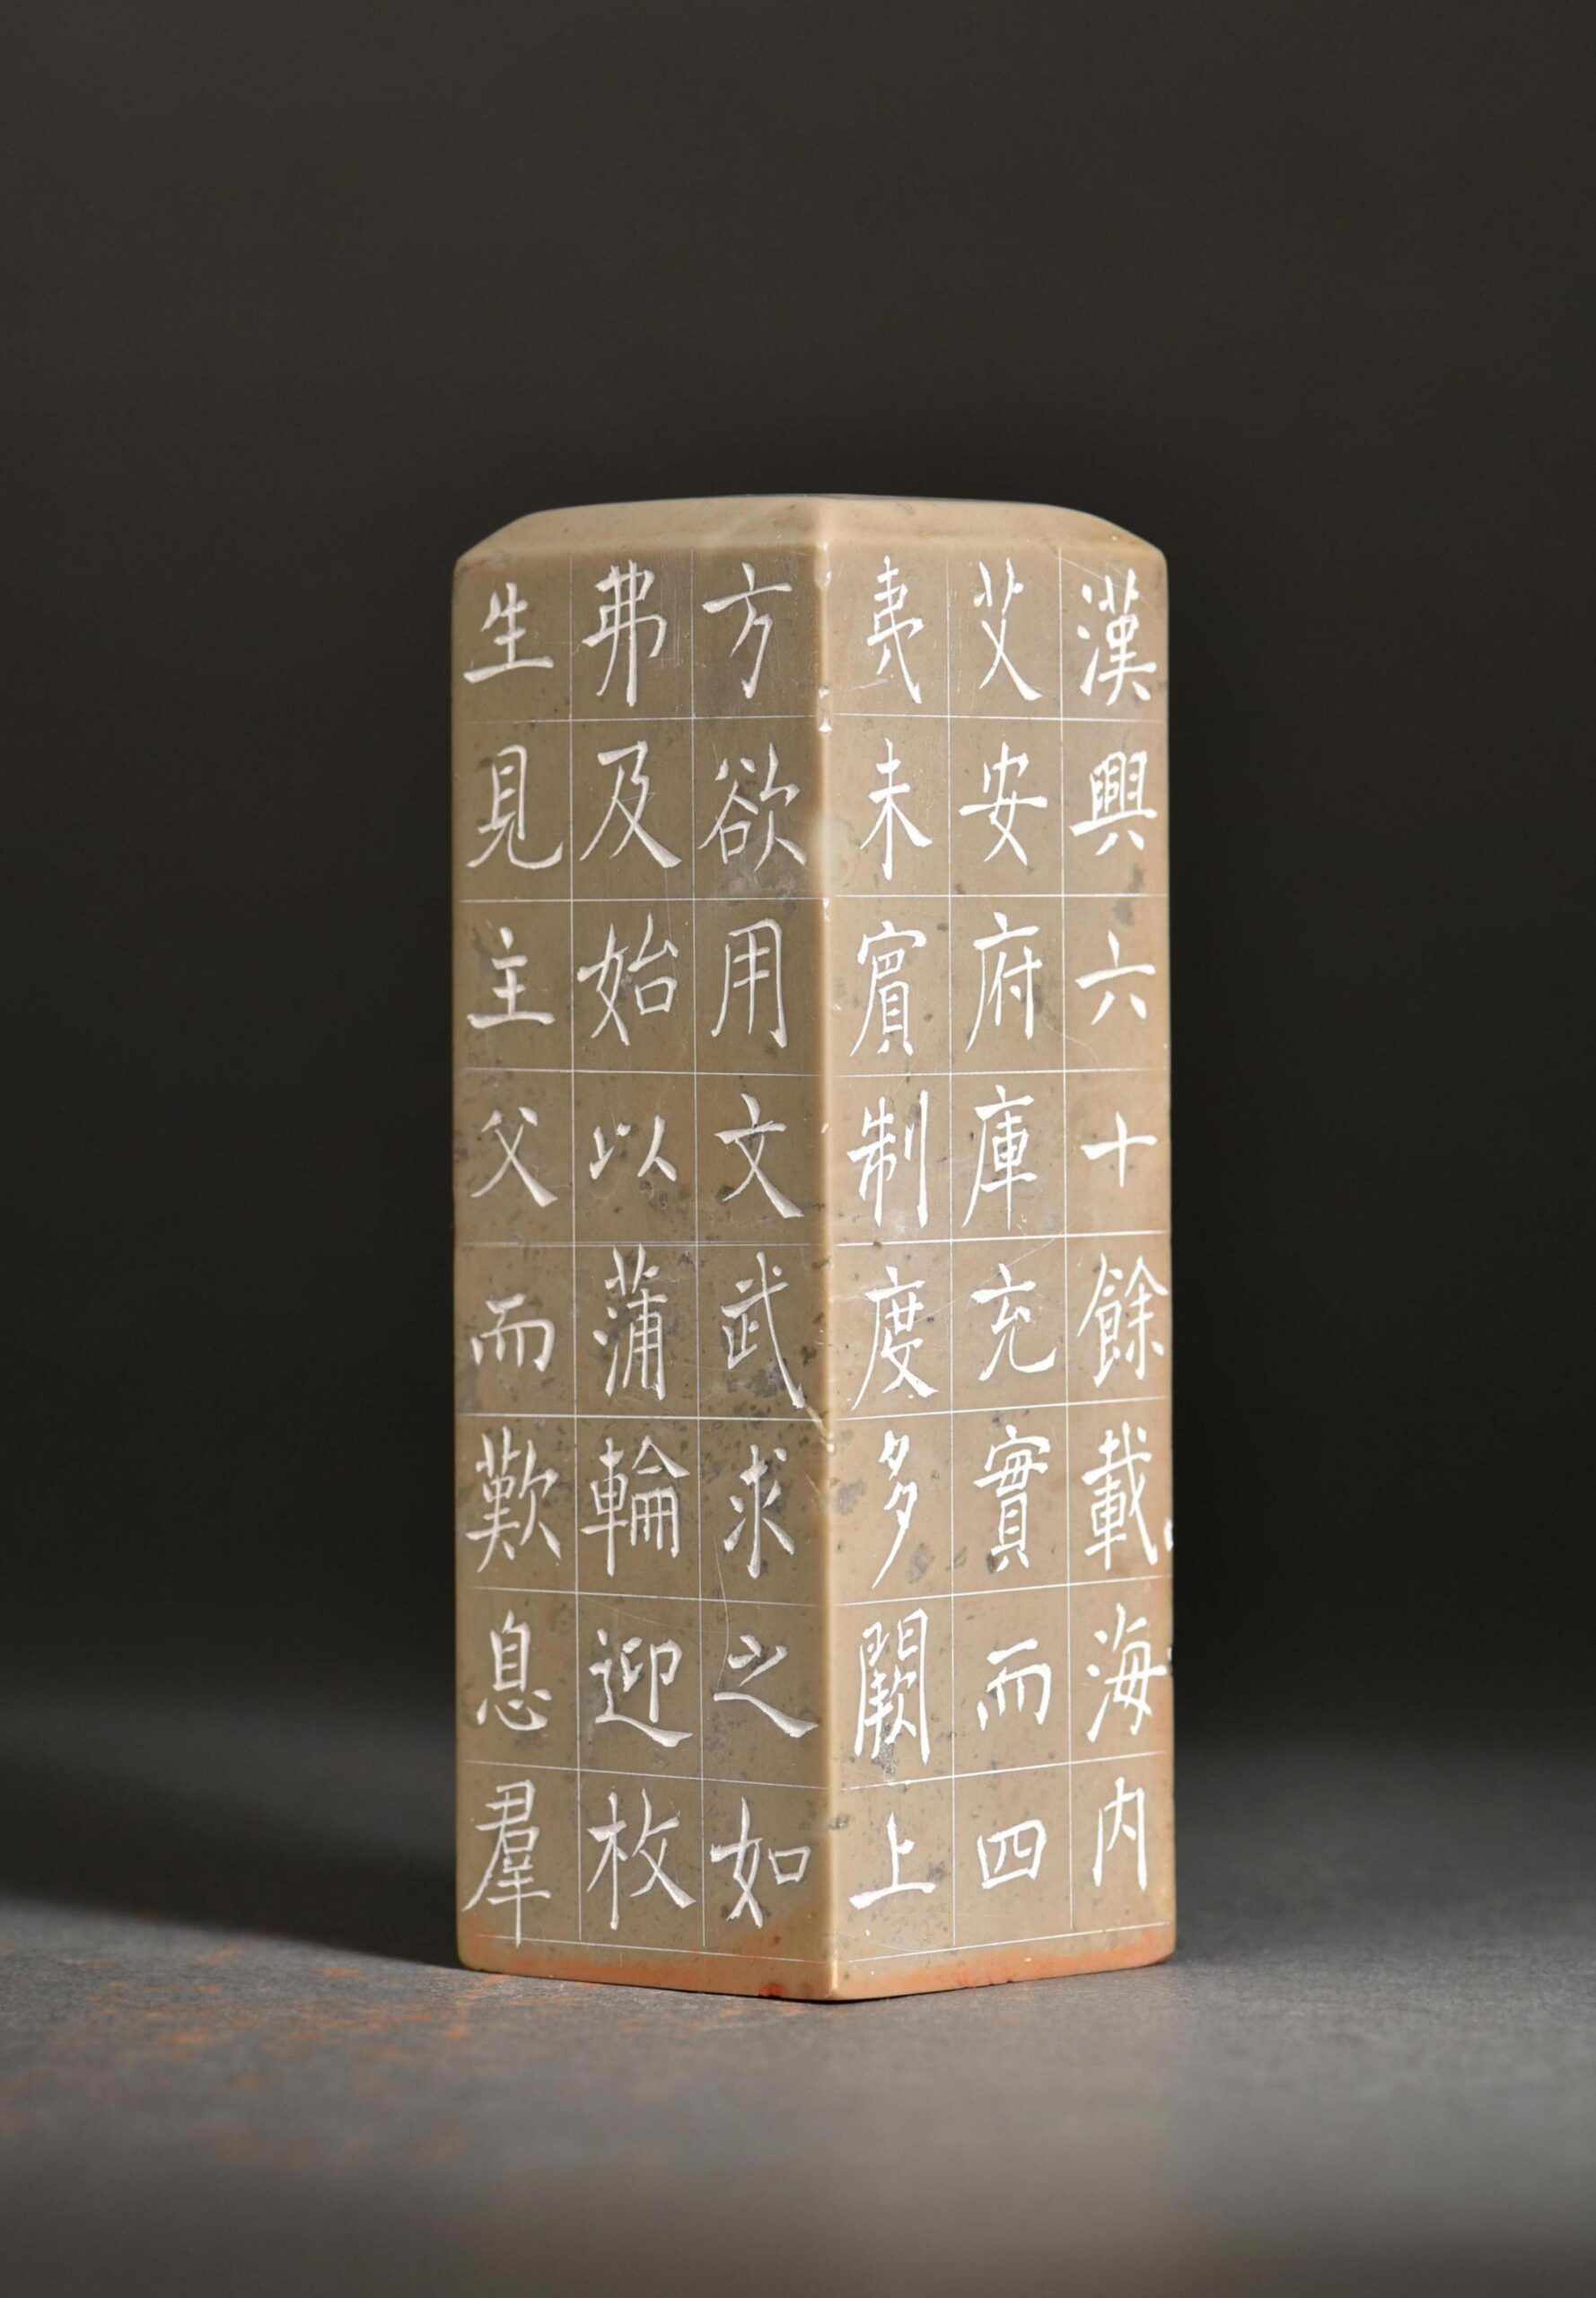 漢興六十餘載海内
艾安府庫充實而四
夷未賔制度多闕上
方欲用文武求之如
弗及始以蒲輪迎枚
生見主父而歎息羣